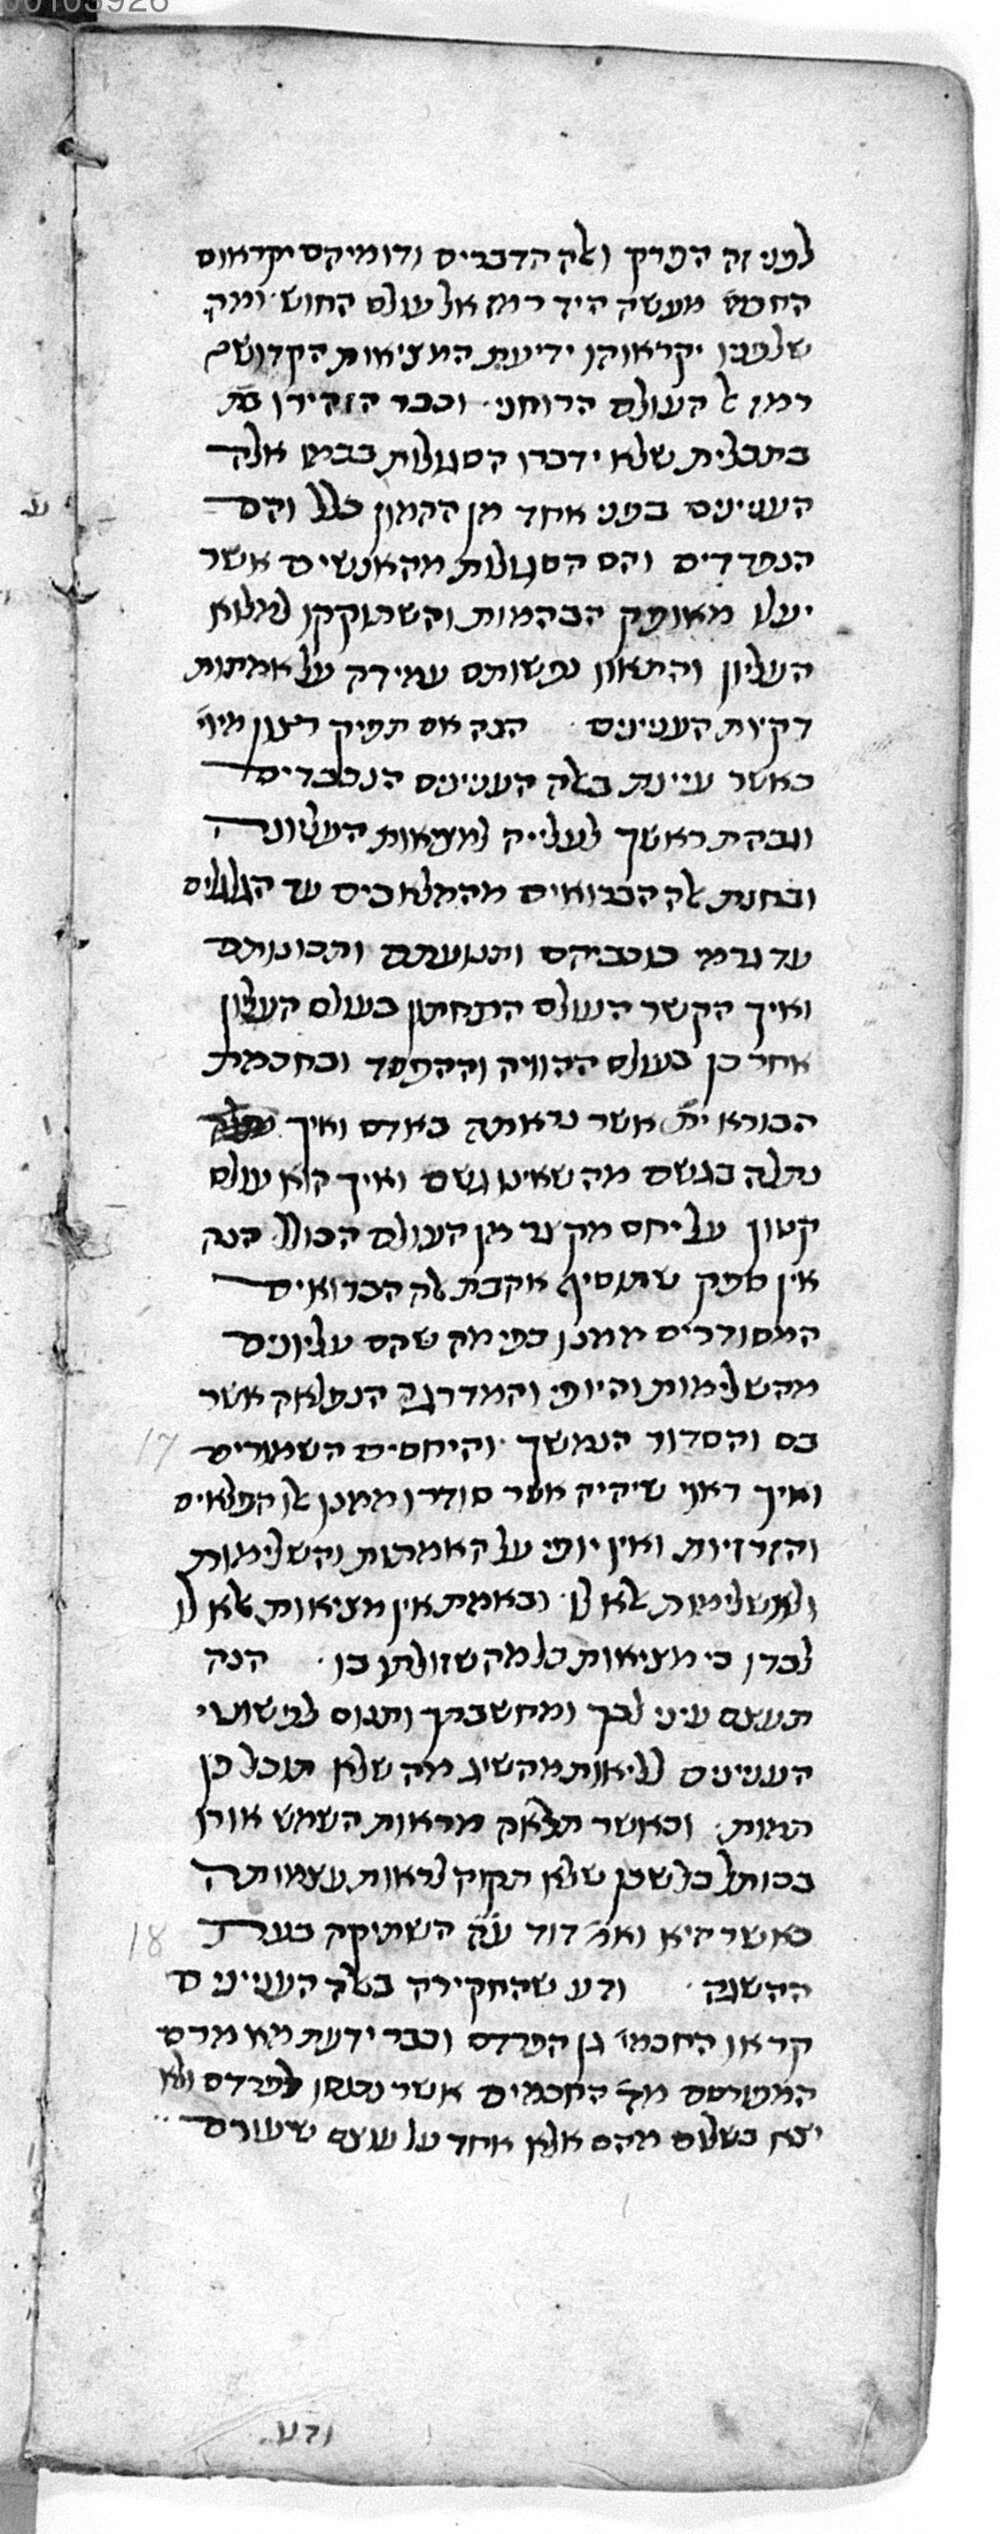 לפני זה הפרק ואלה הדברים ודומיהם יקראום
החכמים מעשה היד רמז אל עולם החוש ומה
שלפניו יקראוהו ידיעת המציאות הקדושה
רמז אל העולם הרוחני וכבר הזהירו
בתכלית שלא ידברו הסגולות בכמו אלה
הענינים בפני אחד מן ההמון כלל והם
הנפרדים והם הסגולות מהאנשים אשר
יעלו מאופק הבהמות והשתוקקו למלוא
העליון והתאוו נפשותם עמידה על אמתות
דקות הענינים הנה אם תפיק רצון
כאשר עיינת באלה הענינים הנכבדים
וגבהת ראשך לעלייה למציאות העליונה
ובחנת אלה הברואים מהמלאכים עד הגלגלים
עד גרמי כוכביהם ותנועתם ותכונותם
ואיך הקשר העולם התחתון בעולם העליון
אחר כן בעולם ההוויה וההפסד ובחכמת
הבורא ית אשר נראתה באדם ואיך
נתלה בגשם מה שאינו גשם ואיך הוא עולם
קטון על יחס מה נגר מן העולם הכולל הנה
אין ספק שתוסיף אהבת אלה הברואים
המסודרים ממנו כפי מה שהם עליונים
מהשלימות והיופי והמדרגה הנפלאה אשר
בם והסדור הנמשך והיחסים השמורים
ואיך ראוי שיהיה אשר סודרו ממנו אלו הפלאים
והזרזיות ואין יופי על האמתות והשלימות
ולא שלימות אלא לו ובאמת אין מציאות אלא לו
לבדו כי מציאות כל מה שזולתו בו הנה
תעצם עיני לבך ומחשבתך ותנוס לפשוטי
הענינים לליאות מהשיג מה שלא תוכל פן
תמות וכאשר תלאה מראות השמש אורו
בכותל כל שכן שלא תחזק לראות עצמותה
כאשר היא ואמ דוד ע״ה השתיקה בעת
ההשגה ודע שהחקירה באלה הענינים
קראו החכמי גן הפרדס וכבר ידעת מאמרם
המפורסם מד החכמים אשר נכנסו לפרדס ולא
יצא בשלום מהם אלא אחד על עוצם שעורם
ודע
17
18